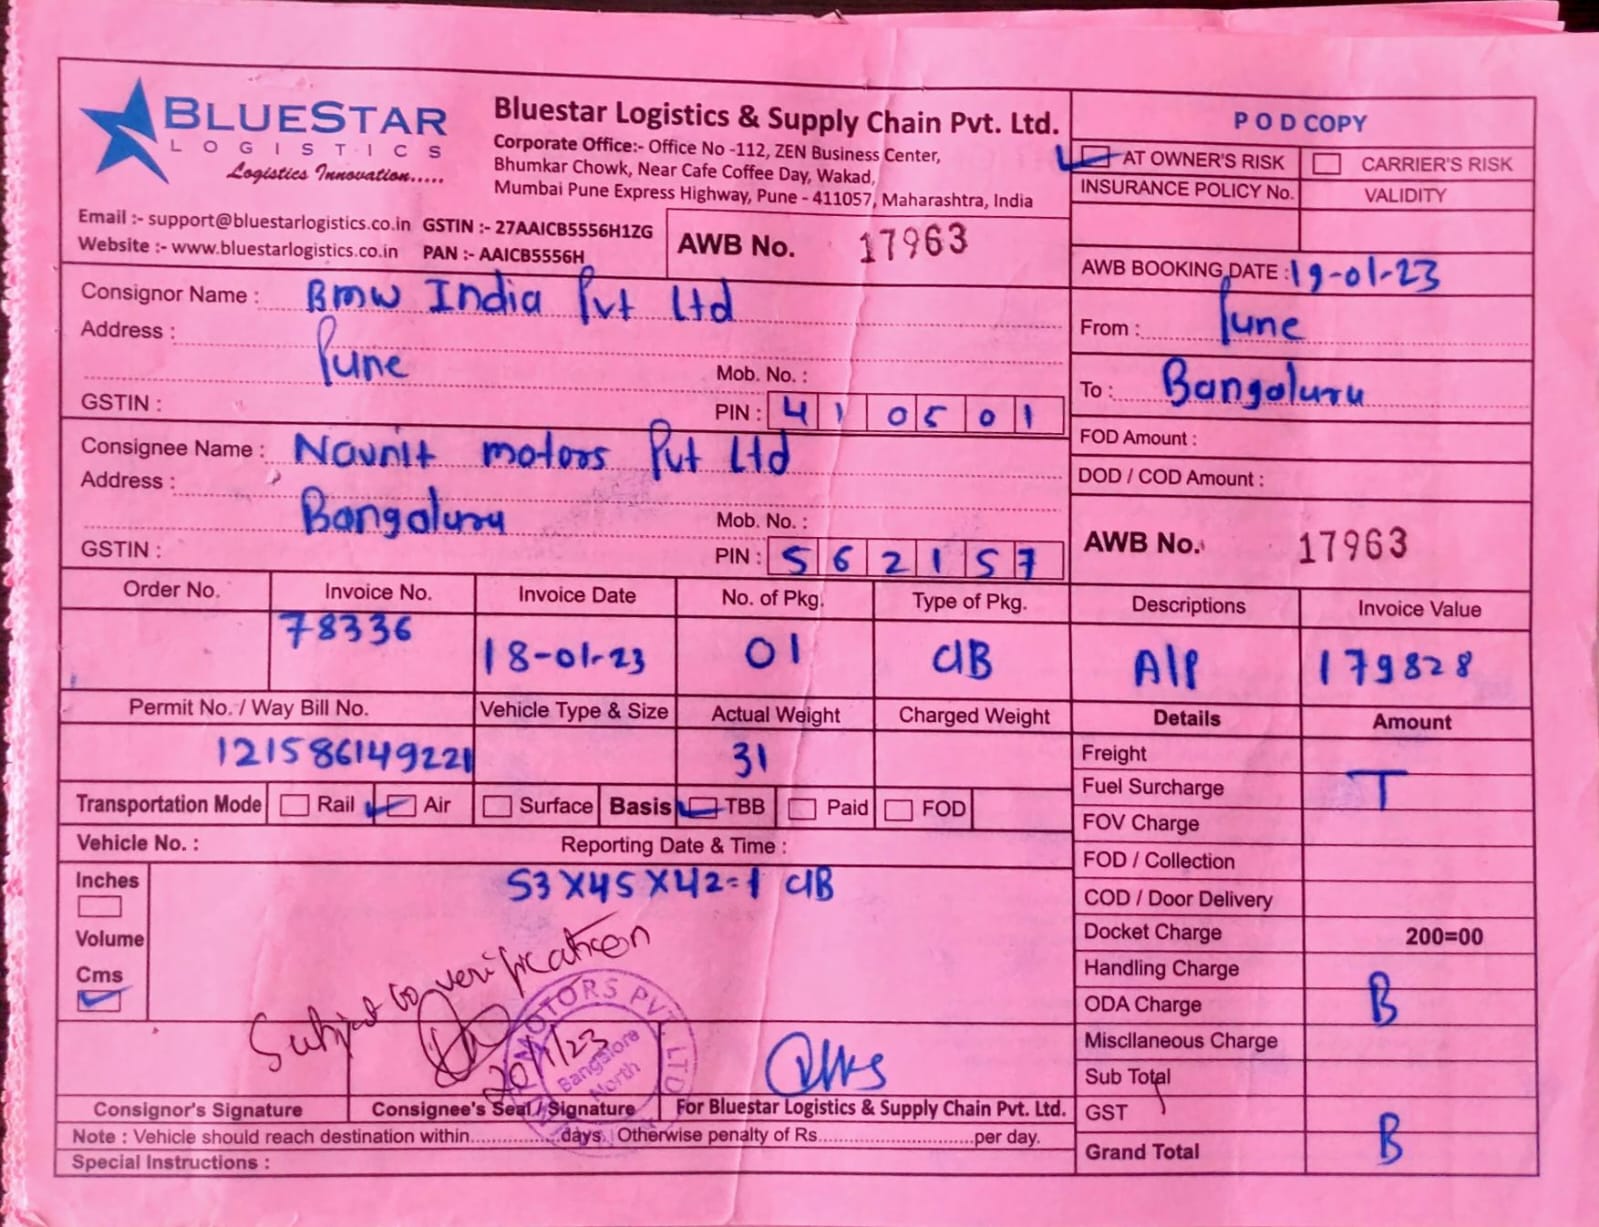 BLUESTAR
LOGISTICS
Logistics Innovation.....
Bluestar Logistics & Supply Chain Pvt. Ltd.
Corporate Office:- Office No -112, ZEN Business Center,
Bhumkar Chowk, Near Cafe Coffee Day, Wakad,
Mumbai Pune Express Highway, Pune - 411057, Maharashtra, India
Email :- support@bluestarlogistics.co.in GSTIN :- 27AAICB5556H1ZG
Website :- www.bluestarlogistics.co.in PAN :- AAICB5556H
AWB No. 17963
POD COPY
AT OWNER'S RISK CARRIER'S RISK
INSURANCE POLICY No. VALIDITY
AWB BOOKING DATE : 19-01-23
From : Pune
To : Bangaluru
FOD Amount :
DOD / COD Amount :
AWB No. 17963
Consignor Name : BMW India Pvt Ltd
Address :
Pune
Mob. No. :
GSTIN : PIN : 410501
Consignee Name : Navnit motors Pvt Ltd
Address :
Bangaluru
Mob. No. :
GSTIN : PIN : 562157
Order No. Invoice No. Invoice Date No. of Pkg. Type of Pkg. Descriptions Invoice Value
78336 18-01-23 01 C/B A/P 179828
Permit No. / Way Bill No. Vehicle Type & Size Actual Weight Charged Weight
121586149221 31
Transportation Mode Rail Air Surface Basis TBB Paid FOD
Vehicle No. : Reporting Date & Time :
Inches
Volume
Cms
53X45X42=1 C/B
Subject to verification
20/1/23
MOTORS PVT. LTD.
Bangalore
North
Consignor's Signature Consignee's Seal / Signature For Bluestar Logistics & Supply Chain Pvt. Ltd.
Note : Vehicle should reach destination within.................days. Otherwise penalty of Rs..............................per day.
Special Instructions :
Details Amount
Freight
Fuel Surcharge T
FOV Charge
FOD / Collection
COD / Door Delivery
Docket Charge 200=00
Handling Charge
ODA Charge B
Miscllaneous Charge
Sub Total
GST
Grand Total B